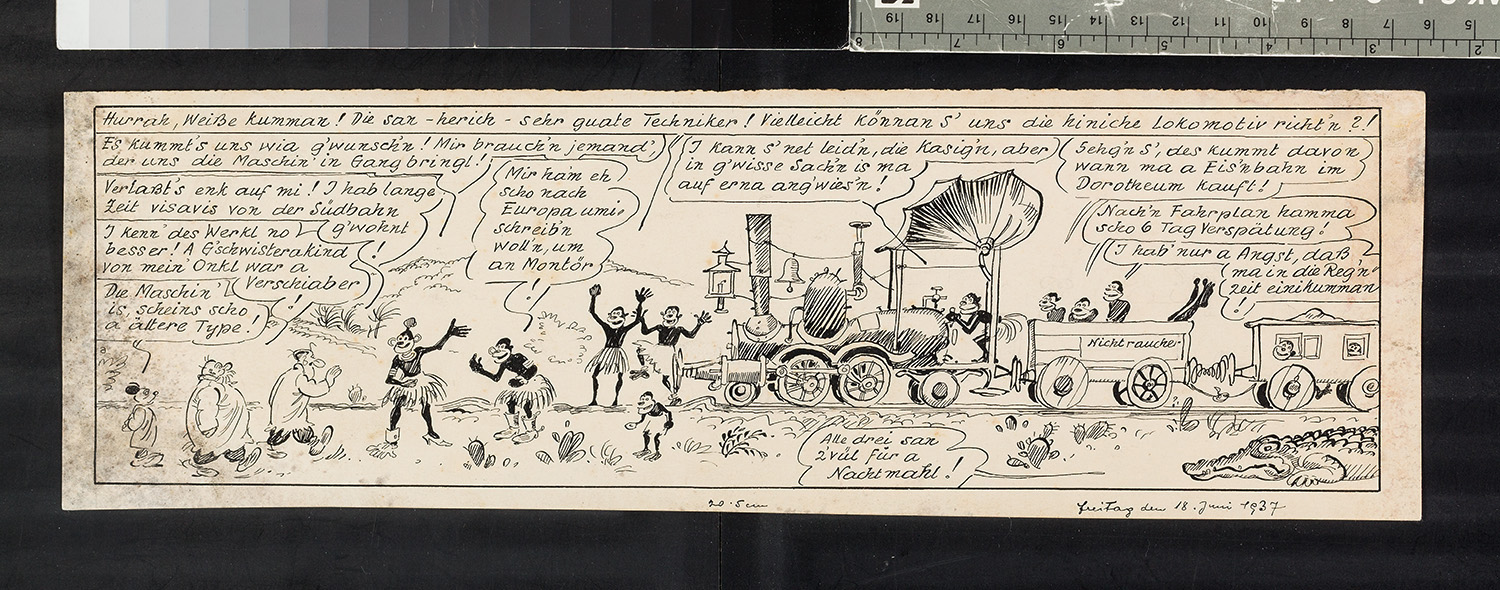 Hurrah, Weiße kumman! Die san - herich - sehr guate Techniker! Vielleicht können S' uns die hiniche Lokomotiv richt'n?!
Es kummt's uns wia g'wunsch'n! Mir brauch'n jemand',
der uns die Maschin' in Gang bringl!
Verlaßt's enk auf mi! I hab lange
Zeit visavis von der Südbahn
g'wohnt!
I kenn' des Werkl no
besser! A G'schwisterakind
von mein' Onkl war a
Verschiaber!
Die Maschin'
is, scheins scho
a ältere Type!
Mir ham eh
scho nach
Europa umi-
schreib'n
woll'n, um
an Montör!
I kann S' net leid'n, die Kasig'n, aber
in g'wisse Sach'n is ma
auf erna angwies'n!
Sehg'n S', des kummt davon
wann ma a Eis'nbahn im
Dorotheum kauft!
Nach'n Fahrplan hamma
scho 6 Tag Verspätung!
I hab' nur a Angst, daß
ma in die Reg'n-
zeit einikumman!
Nichtraucher
Alle drei san
z'vül für a
Nachtmahl!
20·5cm
Freitag den 18. Juni 1937
19 18 17 16 15 14 13 12 11 10 9 8 7 6 5
8 7 6 5 4 3 2